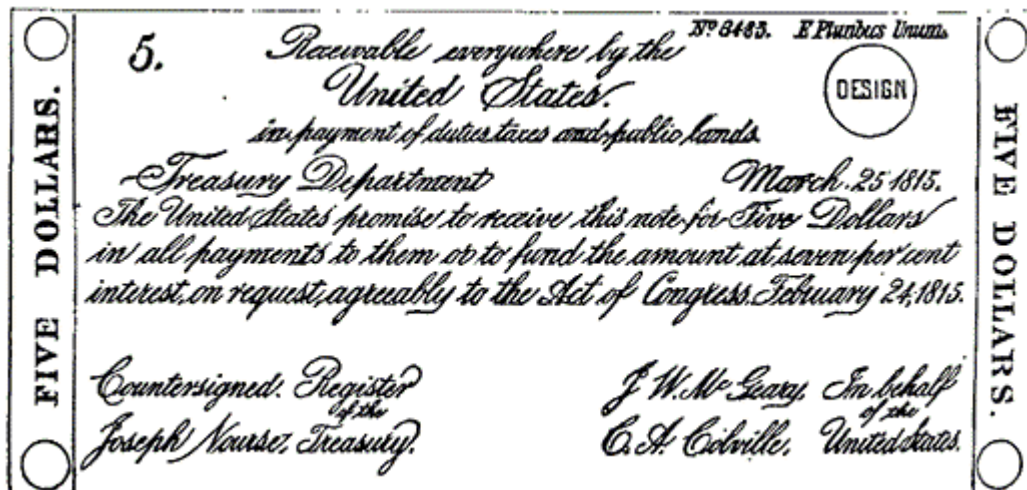 FIVE DOLLARS.
5.
Nº 8483. E Pluribus Unum.
Receivable everywhere by the
United States.
in payment of duties taxes and public lands
DESIGN
Treasury Department March. 25 1815.
The United States promise to receive this note for Five Dollars
in all payments to them or to fund the amount at seven per cent
interest, on request, agreeably to the Act of Congress. February 24, 1815.
Countersigned. Register
of the
Joseph Nourse, Treasury.
J. W. Mc Geary, In behalf
of the
C. A. Colville, United States.
FIVE DOLLARS.